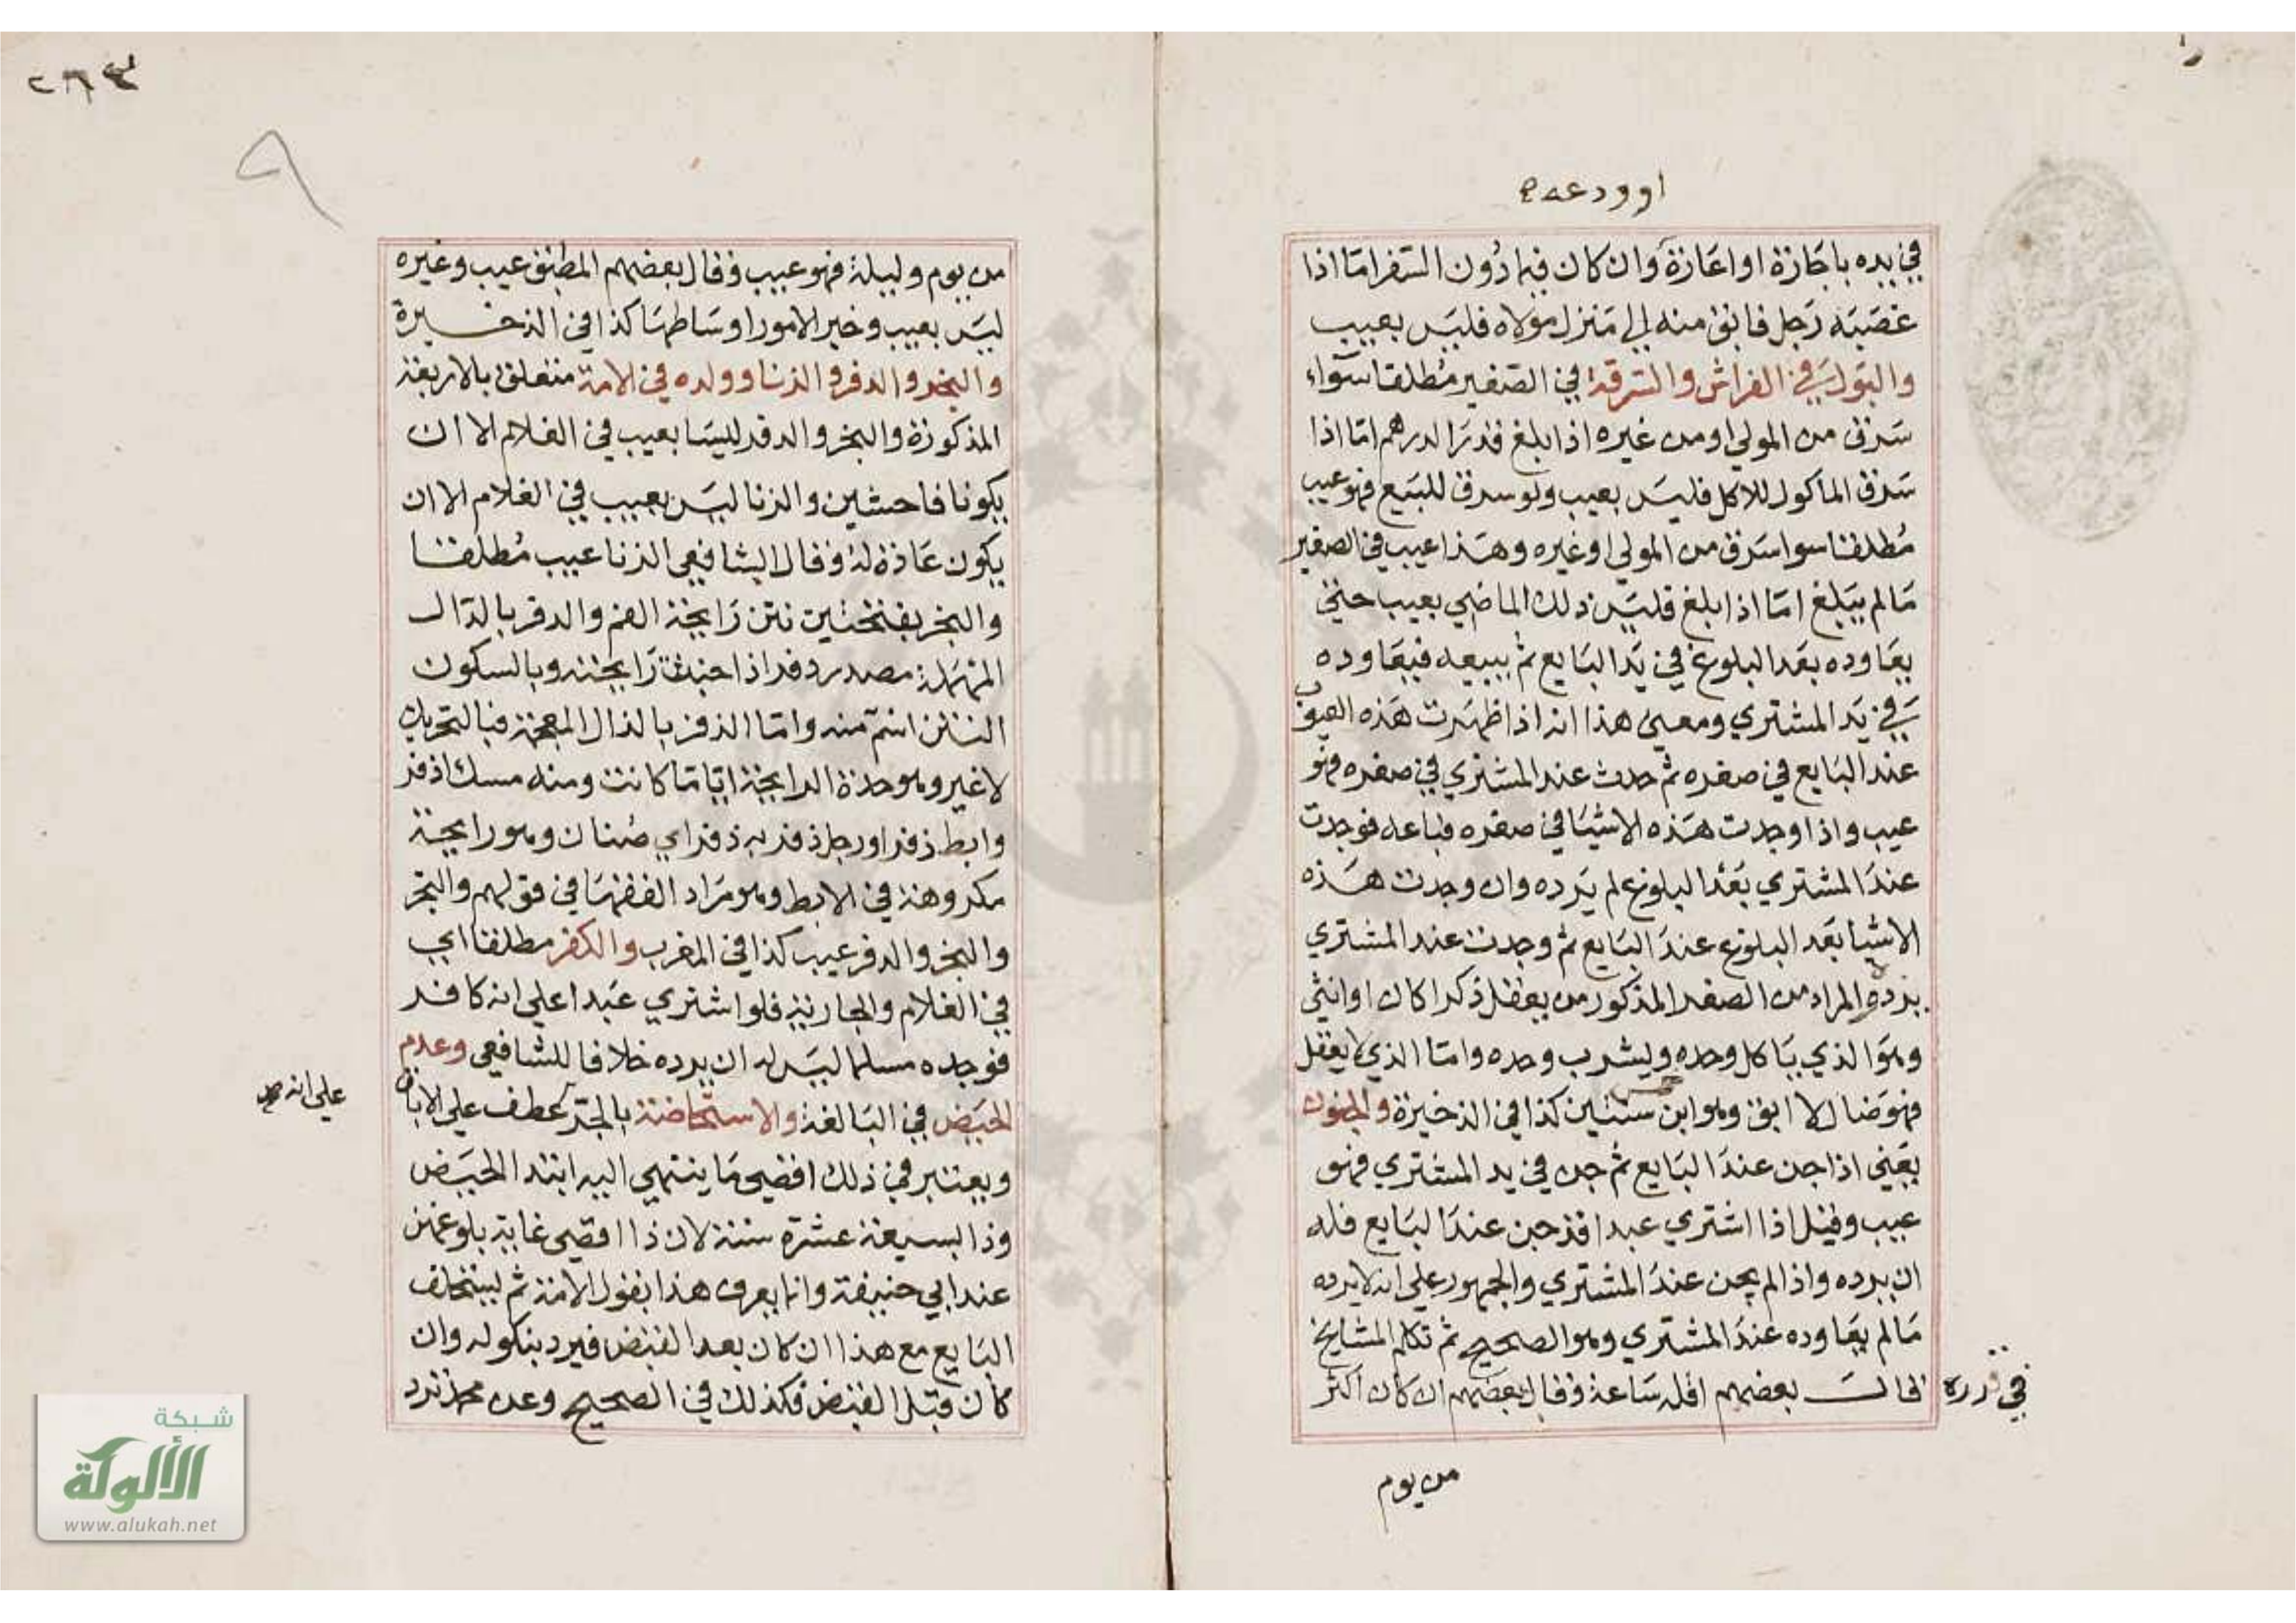 اوودعه
في يده باجازة او اعارة وان كان فيما دون السفر اما اذا
غصبه رجل فابق منه الى منزل مولاه فليس بعيب
والبول في الفراش والسرقة في الصغير مطلقا سواء
سرق من المولى او من غيره اذا بلغ قدر الدرهم اما اذا
سرق الماكول للاكل فليس بعيب ولو سرق للبيع فهو عيب
مطلقا سوا سرق من المولى او غيره وهذا عيب في الصغير
ما لم يبلغ اما اذا بلغ فليس ذلك الماضي بعيب حتى
يعاوده بعد البلوغ في يد البايع ثم يبيعه فيعاوده
في يد المشتري ومعنى هذا انه اذا ظهرت هذه العيوب
عند البايع في صغره ثم حدث عند المشتري في صغره فهو
عيب واذا وجدت هذه الاشيا في صغره فباعه فوجدت
عند المشتري بعد البلوغ لم يرده وان وجدت هذه
الاشيا بعد البلوغ عند البايع ثم وجدت عند المشتري
يرده والمراد من الصغر المذكور من يعقل ذكرا كان او انثى
وهو الذي ياكل وحده ويشرب وحده واما الذي لا يعقل
فهو ضال لا ابق وهو ابن سنتين كذا في الذخيرة والجنون
يعني اذا جن عند البايع ثم جن في يد المشتري فهو
عيب وقيل اذا اشترى عبدا قد جن عند البايع فله
ان يرده واذا لم يجن عند المشتري والجمهور على انه لا يرده
ما لم يعاوده عند المشتري وهو الصحيح ثم تكلم المشايخ
في قدره قال بعضهم اقله ساعة وقال بعضهم ان كان اكثر
من يوم
٢٦٣
٩
من يوم وليلة فهو عيب وقال بعضهم المطبق عيب وغيره
ليس بعيب وخير الامور اوساطها كذا في الذخيرة
والبخر والدفر والزنا وولده في الامة متعلق بالاربعة
المذكورة والبخر والدفر ليسا بعيب في الغلام الا ان
يكونا فاحشين والزنا ليس بعيب في الغلام الا ان
يكون عادة له وقال الشافعي الزنا عيب مطلقا
والبخر بفتحتين نتن رايحة الفم والدفر بالدال
المهملة مصدر دفر اذا خبثت رايحته وبالسكون
النتن اسم منه واما الذفر بالذال المعجمة فبالتحريك
لا غير وهو حدة الرايحة اياما كانت ومنه مسك اذفر
وابط ذفر او رجل ذفر به ذفر اي صنان وهو رايحة
مكروهة في الابط وهو مراد الفقها في قولهم والبخر
والبخر والدفر عيب كذا في المغرب والكفر مطلقا اي
في الغلام والجارية فلو اشترى عبدا على انه كافر
فوجده مسلما ليس له ان يرده خلافا للشافعي وعدم
الحيض في البالغة والاستحاضة بالجر عطف على الاباق
على انه صح
ويعتبر في ذلك اقصى ما ينتهي اليه ابتدا الحيض
وذا بسبعة عشرة سنة لان ذا اقصى غاية بلوغهن
عند ابي حنيفة وانما يعرف هذا بقول الامة ثم يستحلف
البايع مع هذا ان كان بعد القبض فيرد بنكوله وان
كان قبل القبض فكذلك في الصحيح وعن محمد ترد
شبكة
الألوكة
www.alukah.net